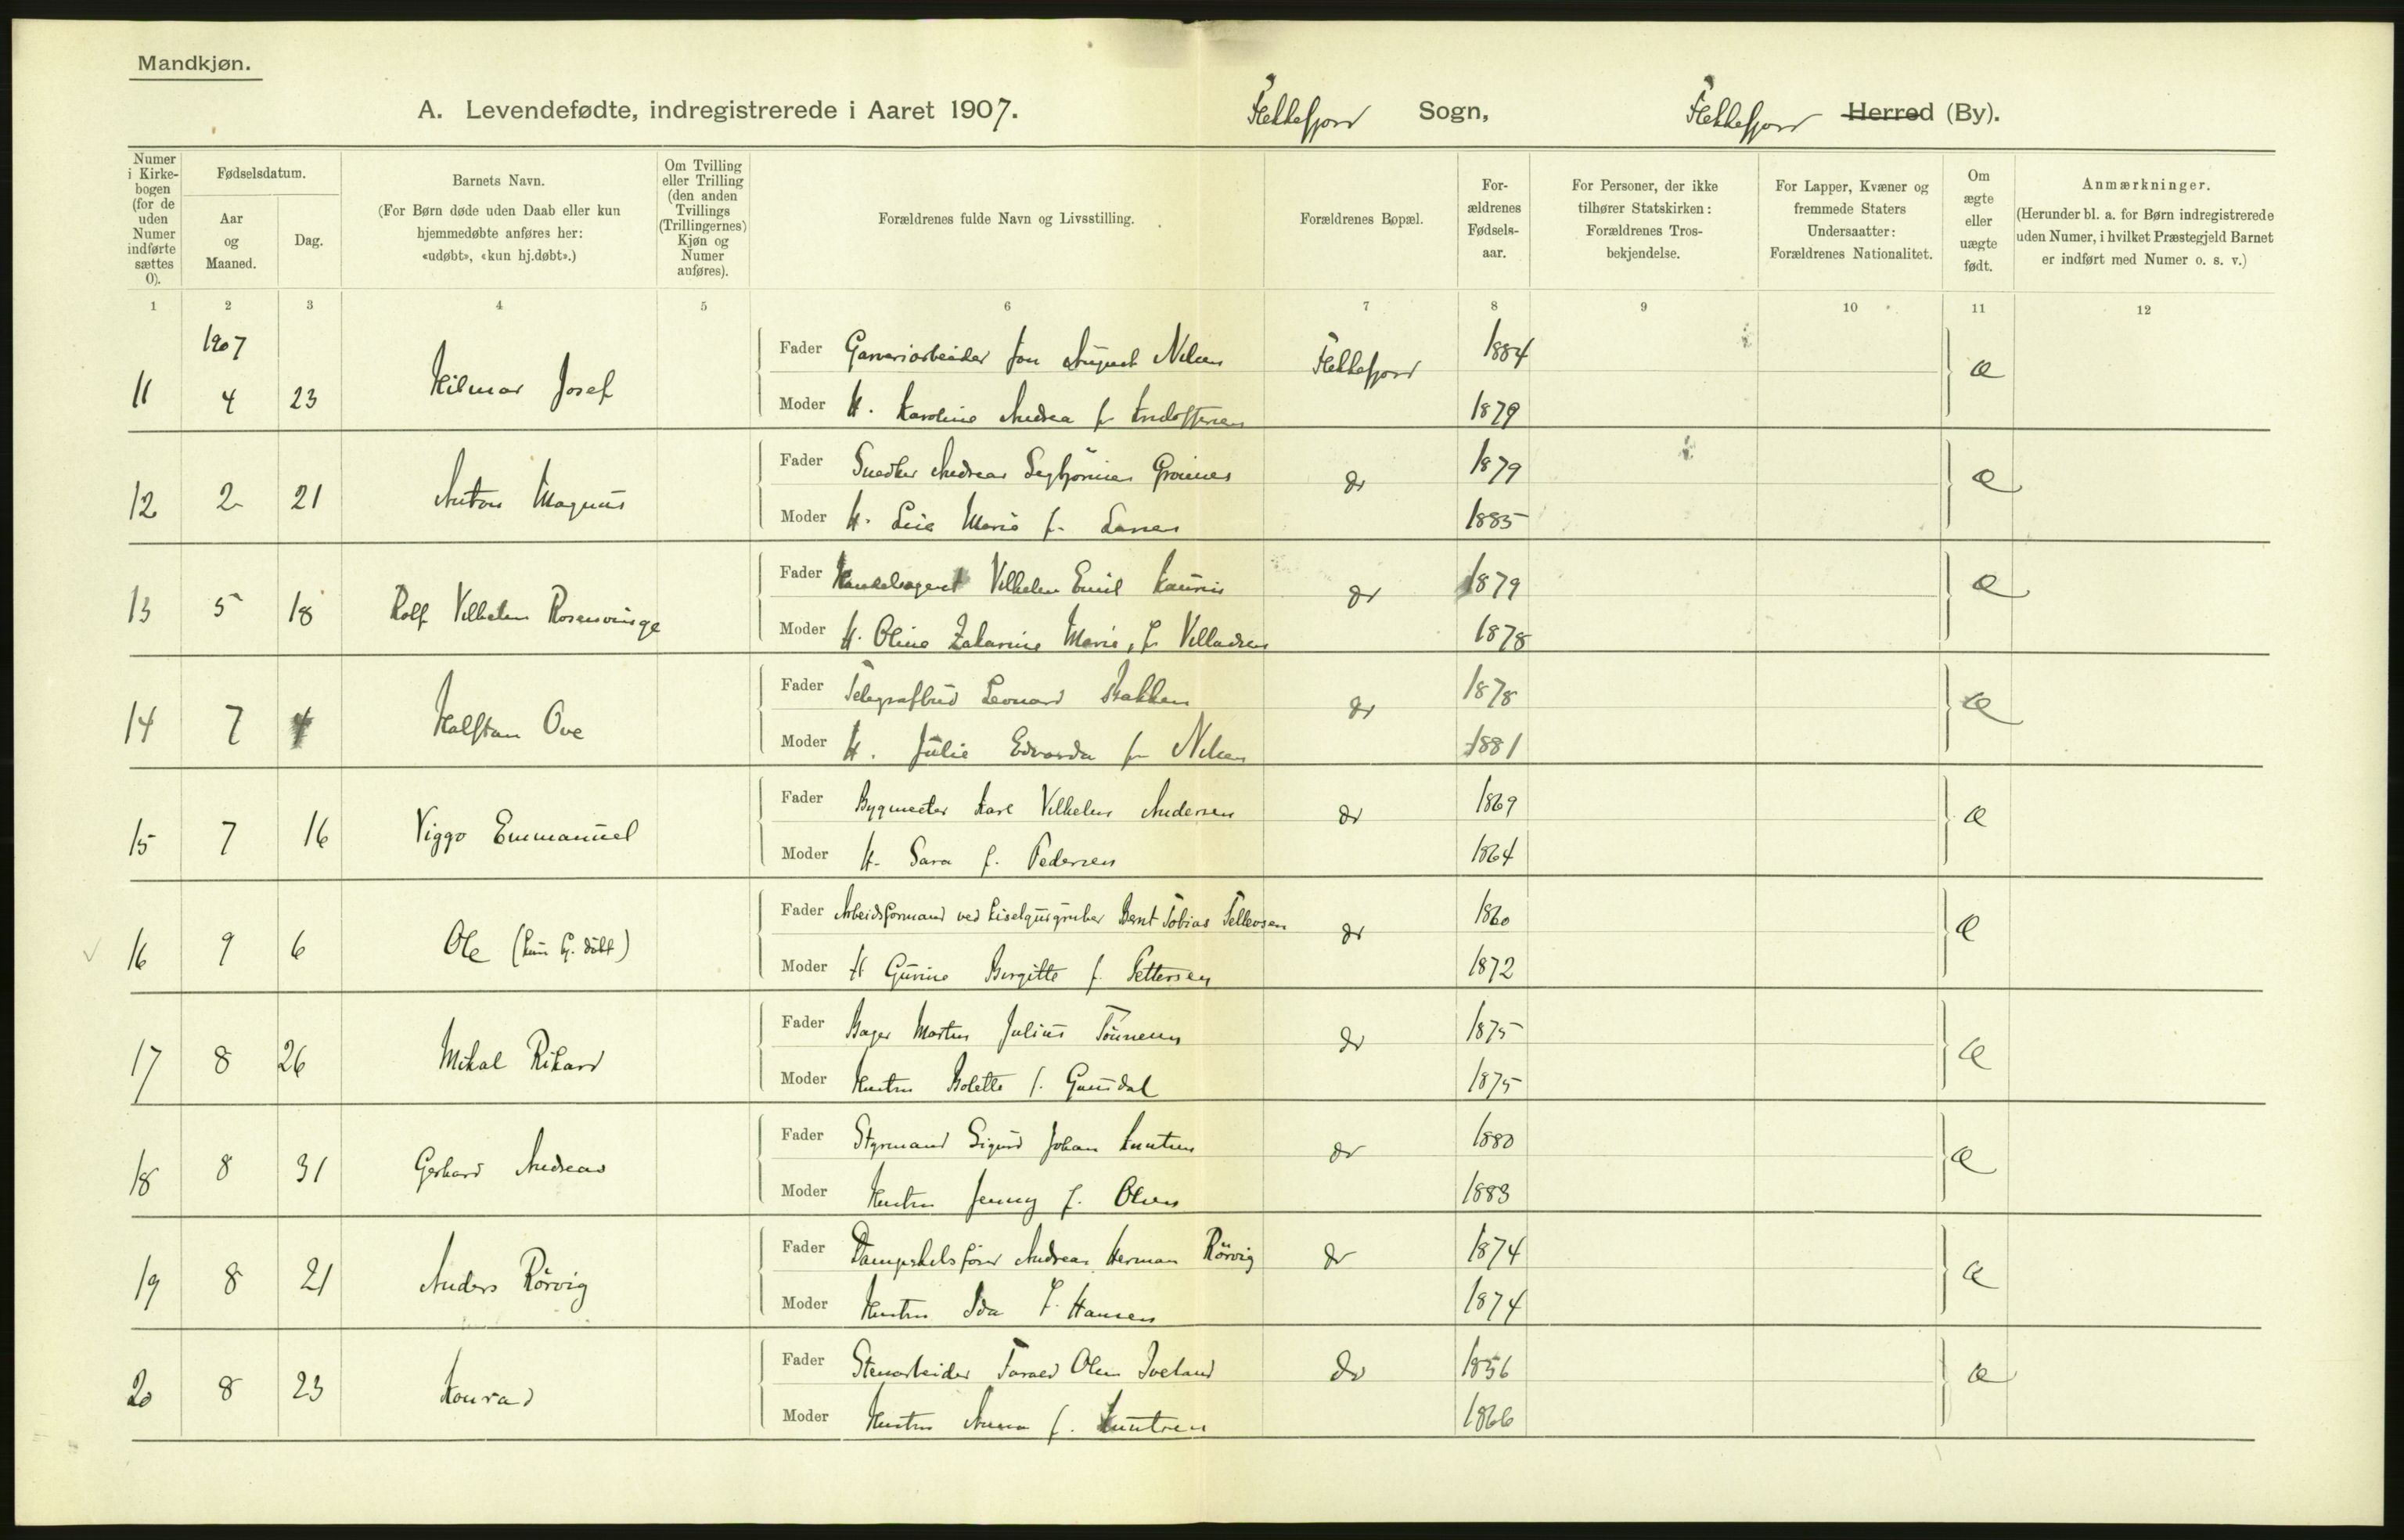 Mandkjøn.
A. Levendefødte, indregistrerede i Aaret 1907. Flekkefjord Sogn, Flekkefjord Herred (By).
Numer i Kirkebogen (for de uden Numer indførte sættes 0).
Fødselsdatum.
Aar og Maaned.
Dag.
Barnets Navn.
(For Børn døde uden Daab eller kun hjemmedøbte anføres her: «udøbt», «kun hj.døbt».)
Om Tvilling eller Trilling (den anden Tvillings (Trillingernes) Kjøn og Numer anføres).
Forældrenes fulde Navn og Livsstilling.
Forældrenes Bopæl.
Forældrenes Fødselsaar.
For Personer, der ikke tilhører Statskirken: Forældrenes Trosbekjendelse.
For Lapper, Kvæner og fremmede Staters Undersaatter: Forældrenes Nationalitet.
Om ægte eller uægte født.
Anmærkninger.
(Herunder bl. a. for Børn indregistrerede uden Numer, i hvilket Præstegjeld Barnet er indført med Numer o. s. v.)
1 2 3 4 5 6 7 8 9 10 11 12
1907
11 4 23 Hilmar Josef Fader Garveriarbeider August Nilsen Flekkefjord 1884 æ
Moder H. Karoline Andrea f. 1879
12 2 21 Anton Magnus Fader Snedker Andreas do 1879 æ
Moder H. Marie f. 1885
13 5 18 Rolf Vilhelm Rosenvinge Fader Handelsagent Vilhelm Emil do 1879 æ
Moder H. Oline Zakarine Marie, f. Villadsen 1878
14 7 4 Halfdan Ove Fader Telegrafbud Leonard Bakken do 1878 æ
Moder H. Julie Edvarda f. Nilsen 1881
15 7 16 Viggo Emmanuel Fader Bygmester Karl Vilhelm Andersen do 1869 æ
Moder H. Sara f. Pedersen 1864
16 9 6 Ole (kun hj. døbt) Fader Arbeidsformand ved Bernt Tobias Tellevsen do 1860 æ
Moder H Gurine Bergitte f. Pettersen 1872
17 8 26 Mikal Rikard Fader Bager Martin Julius Tønnesen do 1875 æ
Moder Hustru Bolette f. 1875
18 8 31 Gerhard Andreas Fader Styrmand Sigurd Johan Knutsen do 1880 æ
Moder Hustru Jenny f. Olsen 1883
19 8 21 Anders Rörvig Fader Dampskibsfører Andreas Herman Rörvig do 1874 æ
Moder Hustru Ida f. Hansen 1874
20 8 23 Konrad Fader Stenarbeider Olsen do 1856 æ
Moder Hustru Anna f. Knutsen 1866